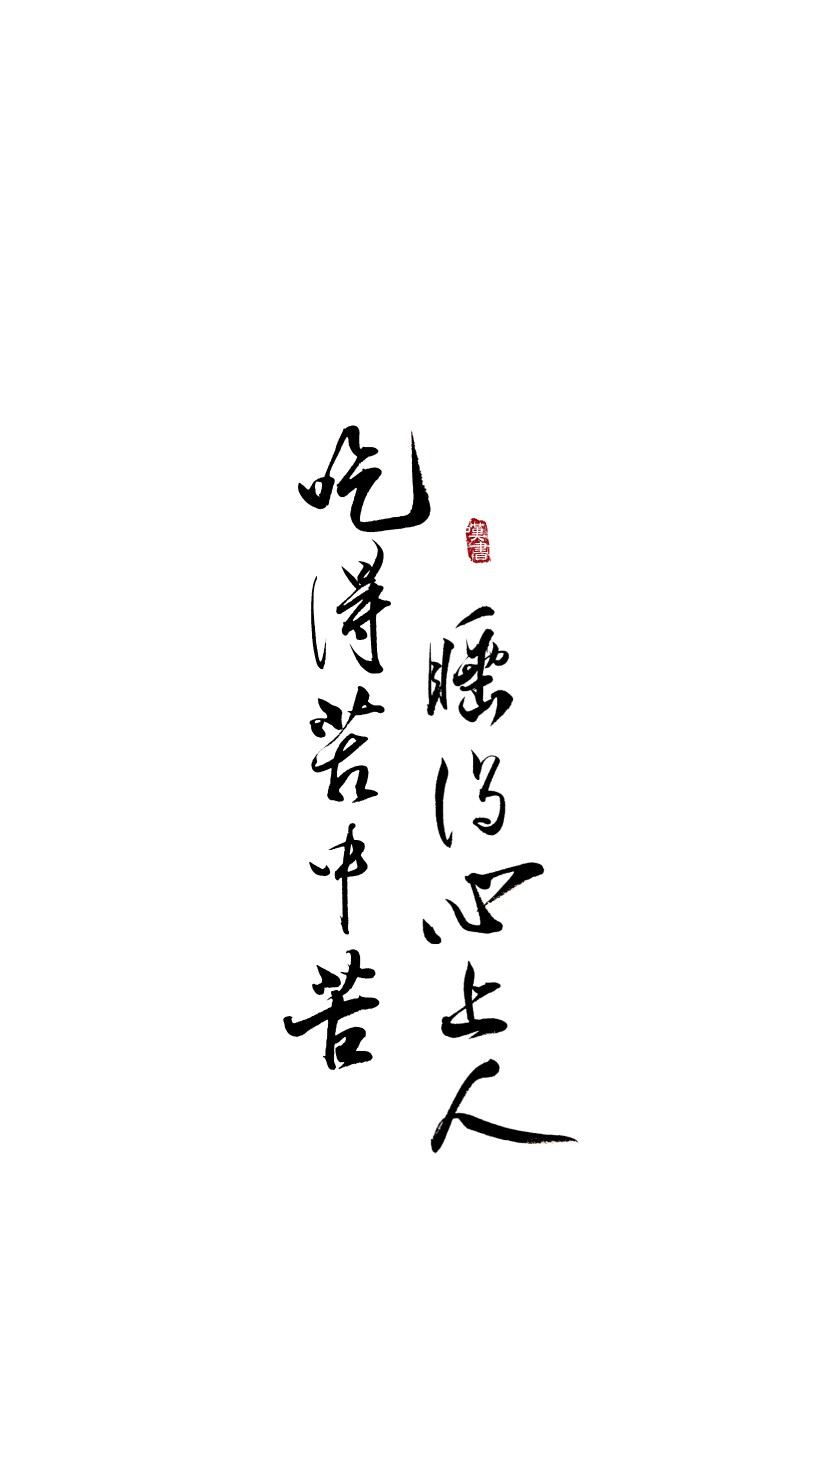 吃得苦中苦
睡得心上人
漢書